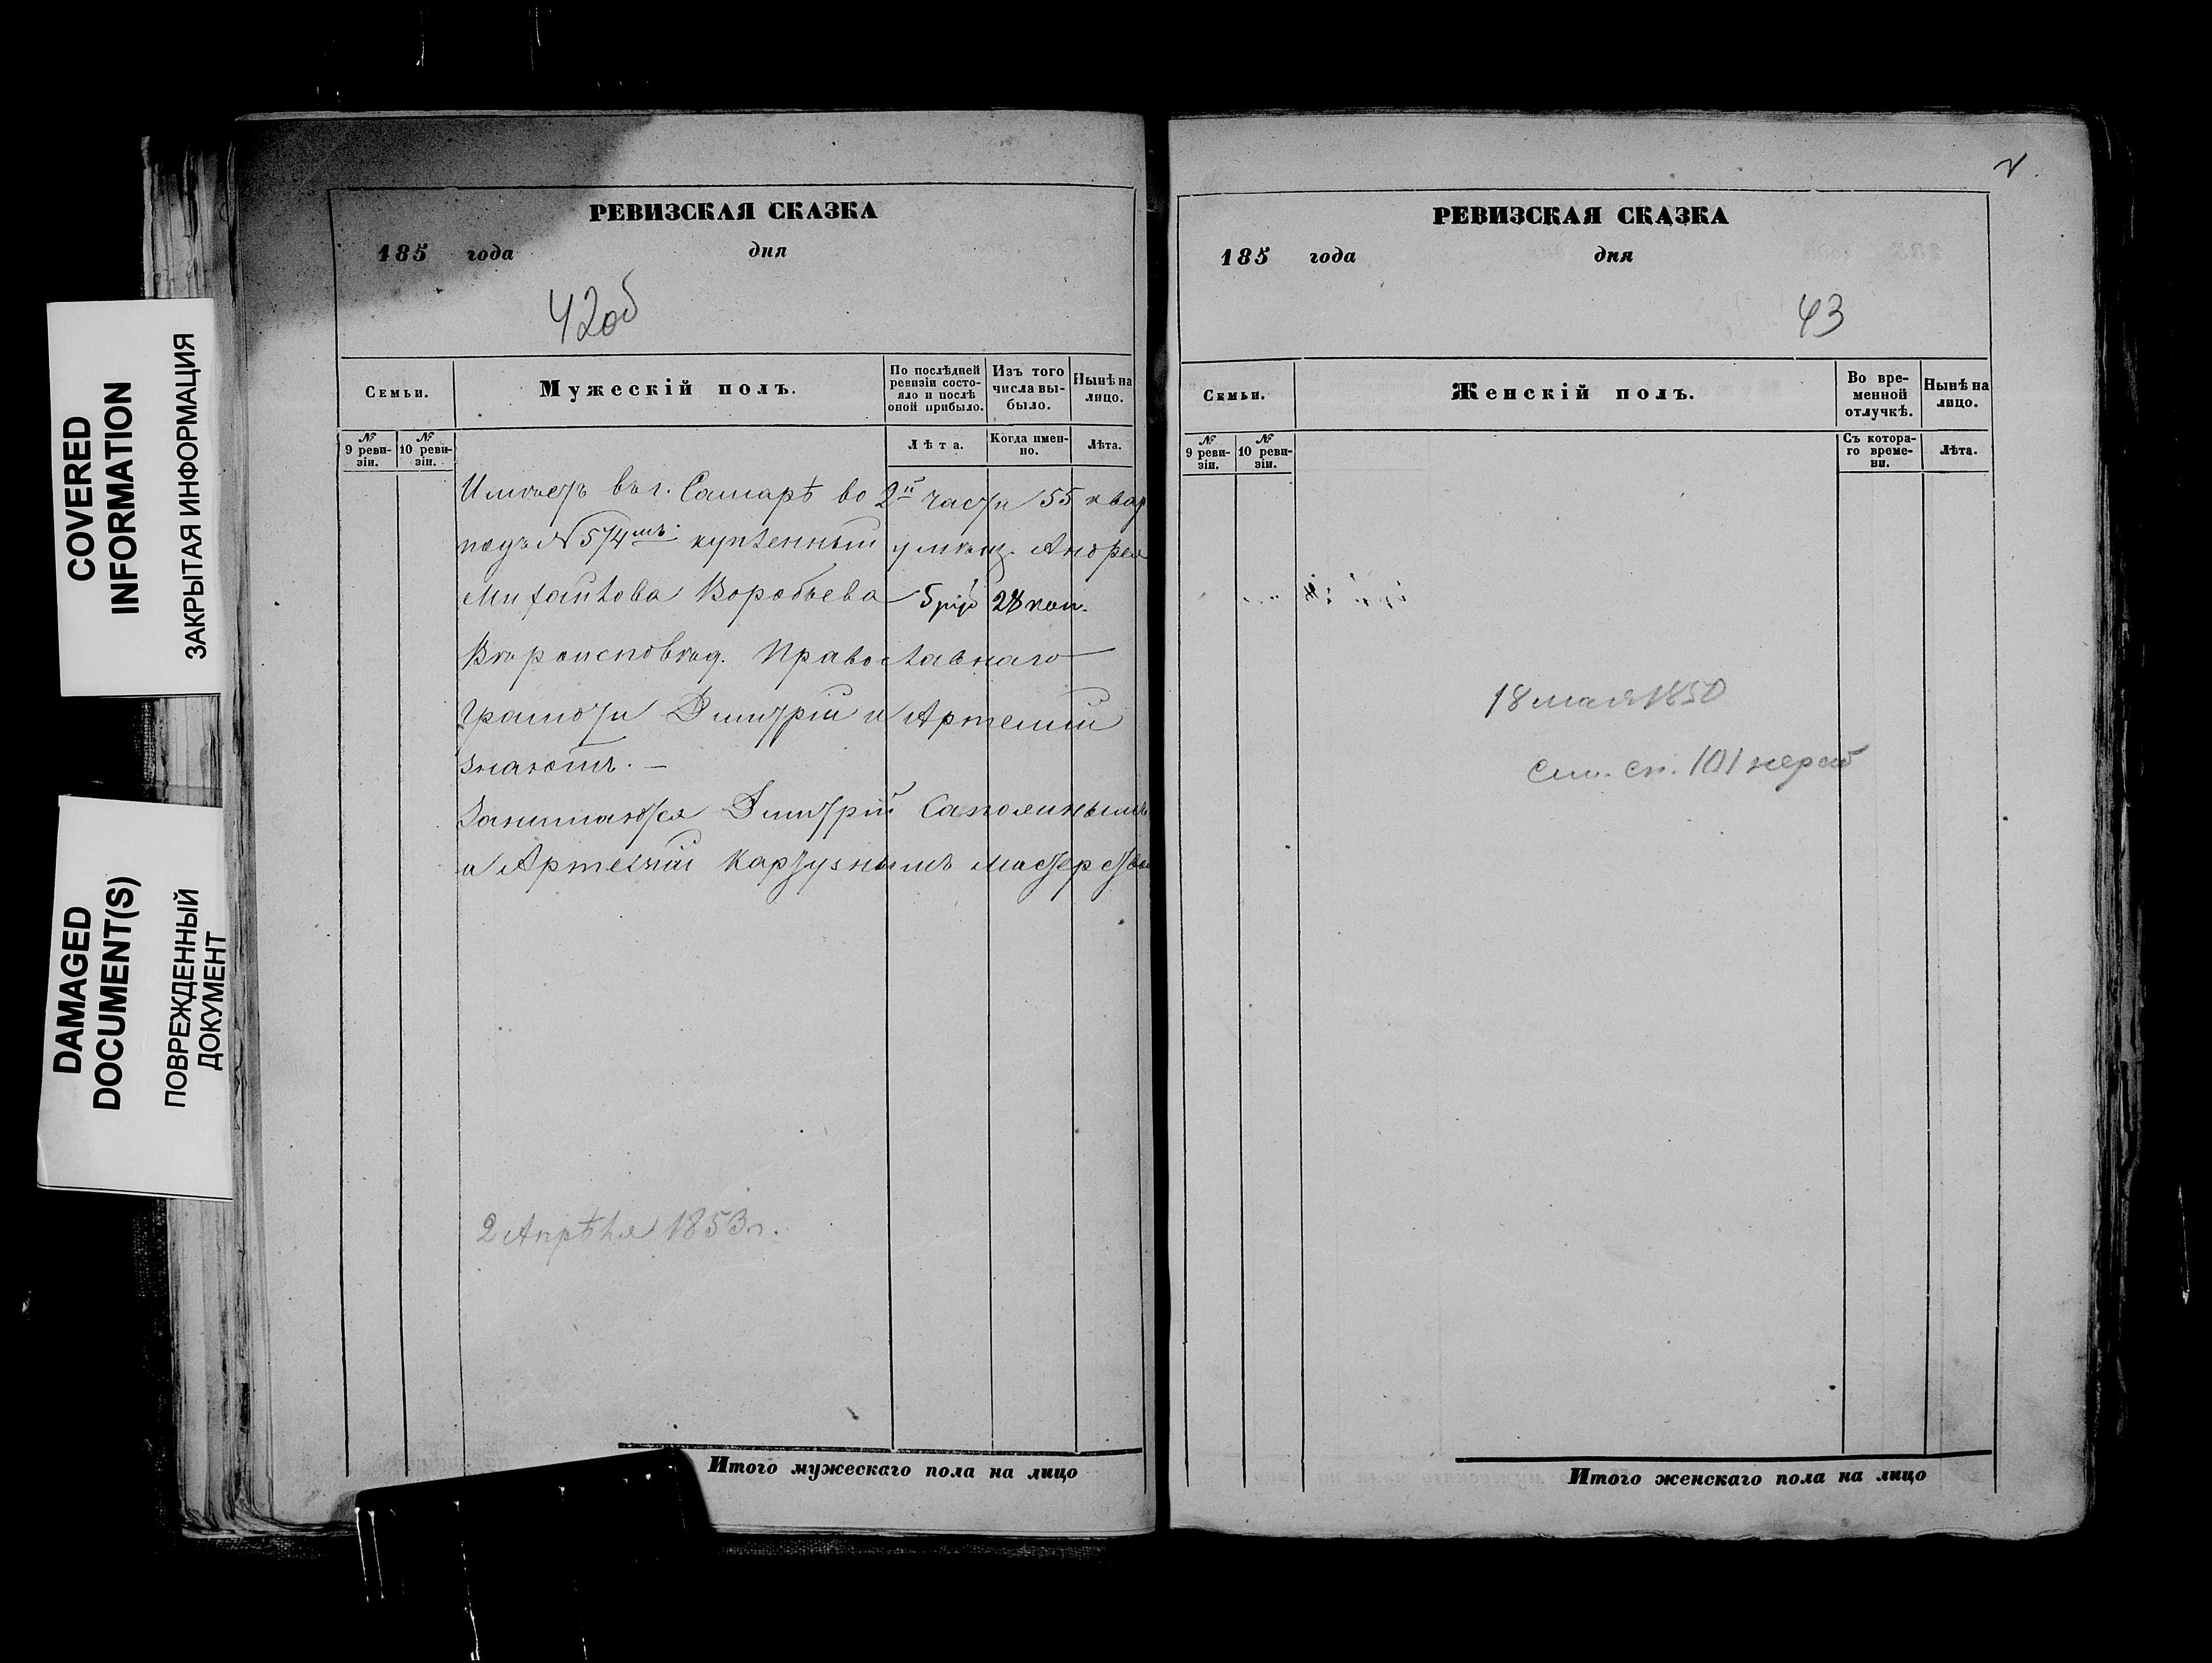 COVERED
INFORMATION
ЗАКРЫТАЯ ИНФОРМАЦИЯ
DAMAGED
DOCUMENT(S)
ПОВРЕЖДЕННЫЙ
ДОКУМЕНТ
РЕВИЗСКАЯ СКАЗКА
185 года дня
42об
Семьи.
Мужескій полъ.
По послѣдней ревизіи состояло и послѣ оной прибыло.
Изъ того числа выбыло.
Нынѣ на лицо.
№ 9 ревизіи.
№ 10 ревизіи.
Лѣта.
Когда именно.
Лѣта.
Имѣетъ въ г. Самарѣ во 2й части 55 квар
подъ № 574мъ купленный у мѣщ. Андрея
Михайлова Воробьева 5 руб 28 коп.
Вѣроисповѣд. Православнаго
Грамоти Дмитрій и Артемій
знаютъ. —
Занимаются Дмитрій Сапожнымъ
и Артемій Картузнымъ мастерство
2 Апрѣля 1853 г.
Итого мужескаго пола на лицо
РЕВИЗСКАЯ СКАЗКА
185 года дня
43
Семьи.
Женскій полъ.
Во временной отлучкѣ.
Нынѣ на лицо.
№ 9 ревизіи.
№ 10 ревизіи.
Съ котораго времени.
Лѣта.
18 мая 1850
см. ст. 101
Итого женскаго пола на лицо